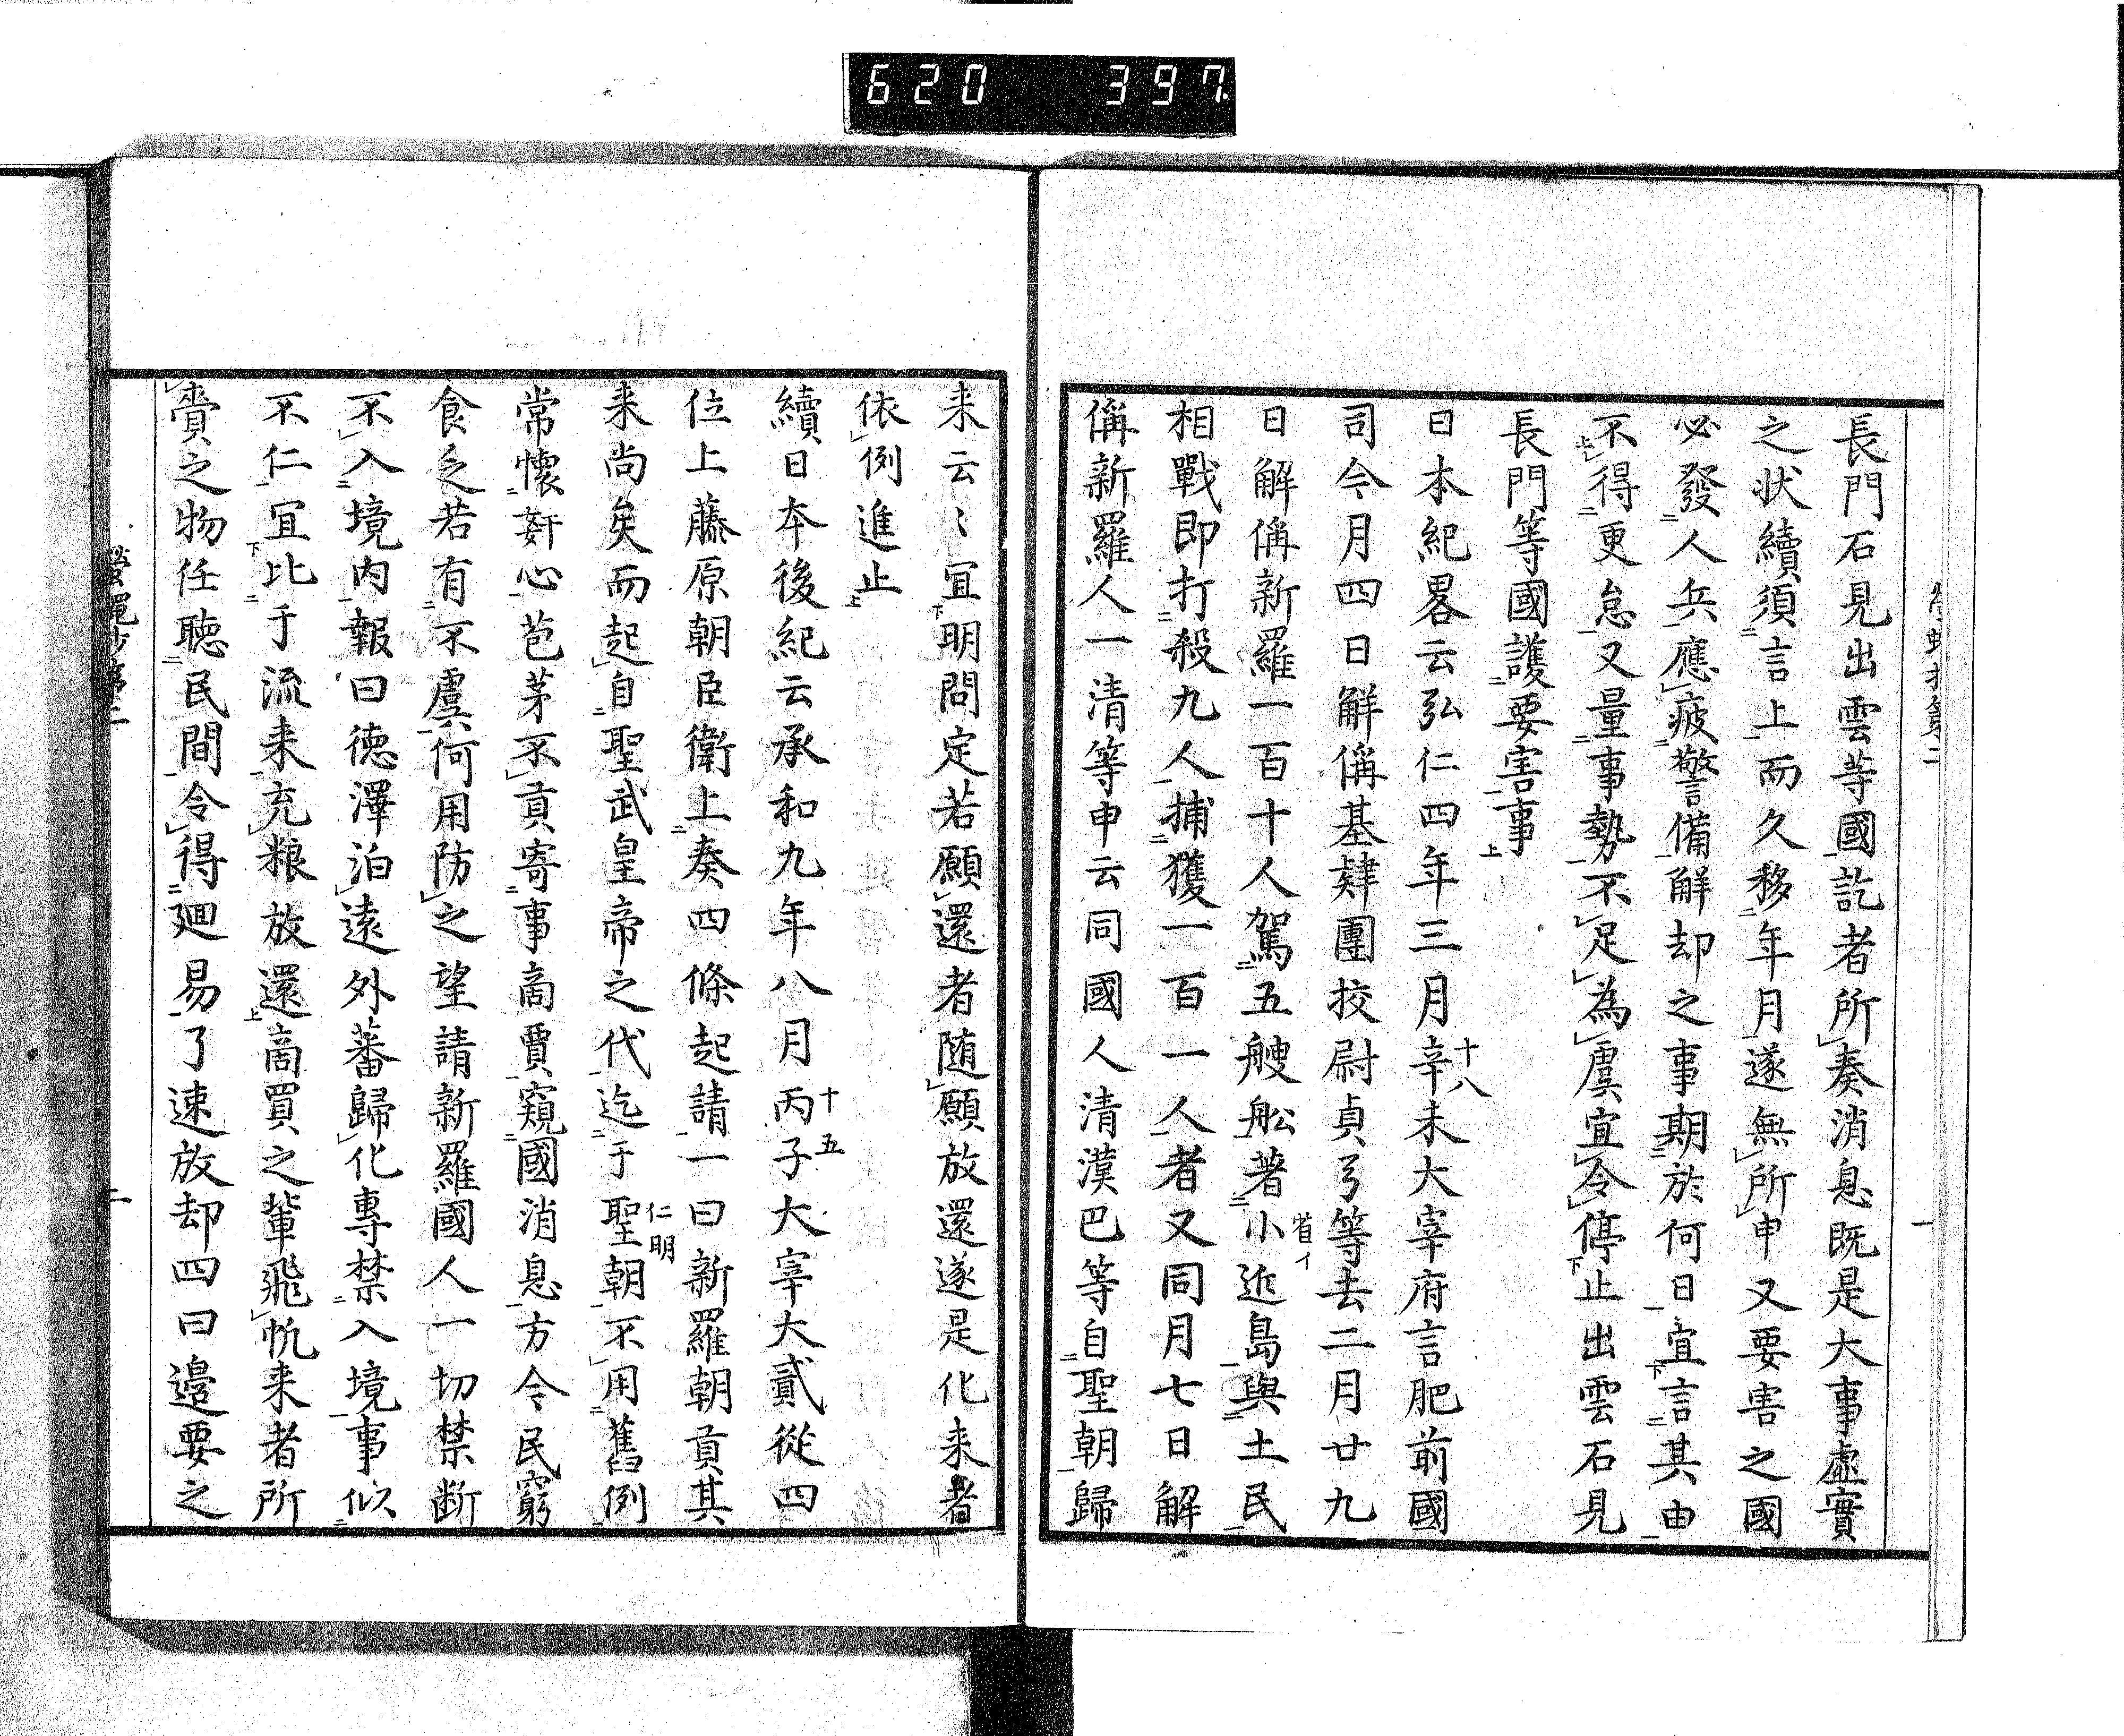 620 397
長門石見出雲等國訖者所奏消息既是大事虛實
之状續須言上而久移年月遂無所申又要害之國
必發人兵應疲警備解却之事期於何日宜言其由
不得更怠又量事勢不足為虞宜令停止出雲石見
長門等國護要害事
日本紀畧云弘仁四年三月辛未大宰府言肥前國
十八
司今月四日解偁基肄團挍尉貞弓等去二月廿九
日解偁新羅一百十人駕五艘舩著小近島與土民
相戰即打殺九人捕獲一百一人者又同月七日解
偁新羅人一清等申云同國人清漢巴等自聖朝歸
一
来云〻宜明問定若願還者随願放還遂是化来者
依例進止
續日本後紀云承和九年八月丙子大宰大貳從四
十五
位上藤原朝臣衛上奏四條起請一曰新羅朝貢其
来尚矣而起自聖武皇帝之代迄于聖朝不用舊例
仁明
常懷姧心苞茅不貢寄事商賈窺國消息方今民窮
食乏若有不虞何用防之望請新羅國人一切禁断
不入境内報曰徳澤泊遠外蕃歸化專禁入境事似
不仁宜比于流来充粮放還商買之輩飛帆来者所
賷之物任聴民間令得廻易了速放却四曰邉要之
螢蠅抄第二
二